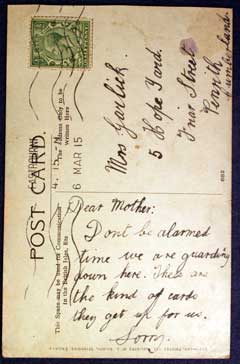 Mrs Garlick.
5 Hope Yard.
Friar Street
Penrith
Cumberland
4. 15 PM
6 MAR 15
The Address only to be
Written Here
POST CARD.
This Space may be used for Communication
in the British Isles, Etc.
Dear Mother:
Don't be alarmed
time we are guarding
down here. These are
the kind of cards
they get up for us.
Sorry.